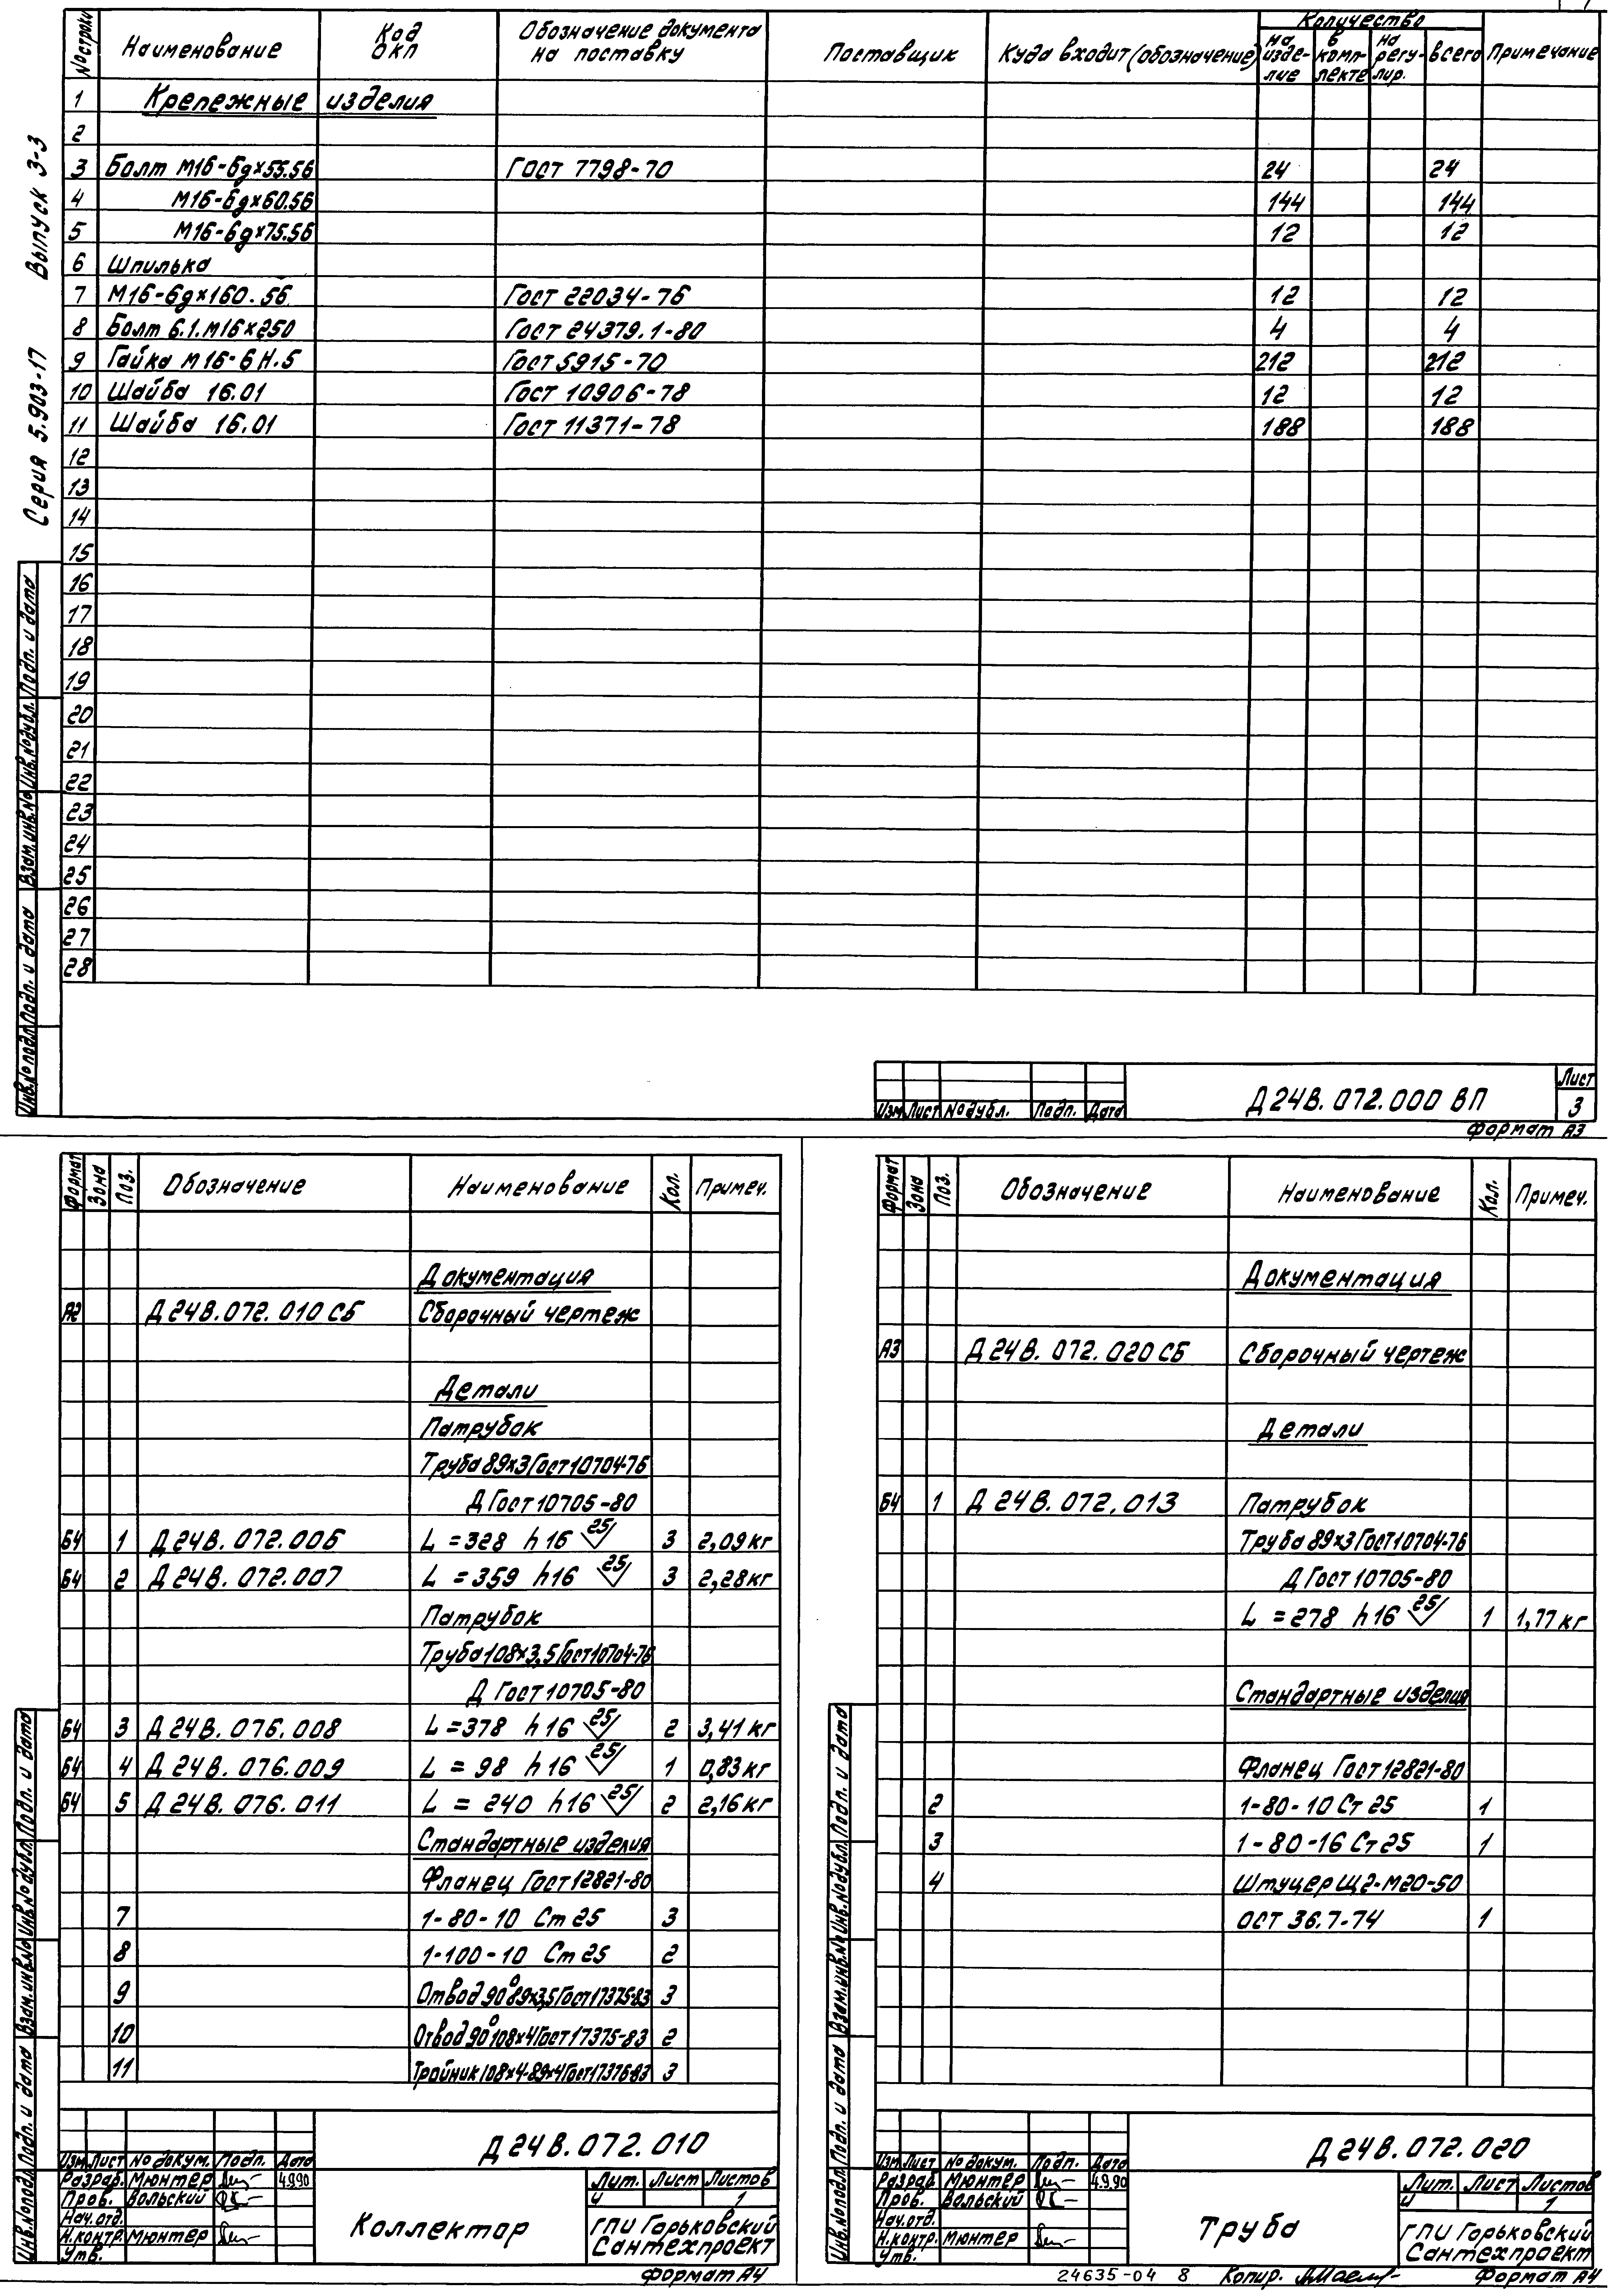 Серия 5.903-17 Выпуск 3-3
№ строки Наименование Код ОКП Обозначение документа на поставку Поставщик Куда входит (обозначение) Количество на изде-лие в комп-лекте на регу-лир. всего Примечание
1 Крепежные изделия
2
3 Болт М16-6gх55.56 ГОСТ 7798-70 24 24
4 М16-6gх60.56 144 144
5 М16-6gх75.56 12 12
6 Шпилька
7 М16-6gх160.56 ГОСТ 22034-76 12 12
8 Болт 6.1.М16х250 ГОСТ 24379.1-80 4 4
9 Гайка М16-6Н.5 ГОСТ 5915-70 212 212
10 Шайба 16.01 ГОСТ 10906-78 12 12
11 Шайба 16.01 ГОСТ 11371-78 188 188
12
13
14
15
16
17
18
19
20
21
22
23
24
25
26
27
28
Инв.№ подл. Подп. и дата Взам.инв.№ Инв.№ дубл. Подп. и дата
Изм. Лист № дубл. Подп. Дата
Д24В.072.000 ВП
Лист
3
Формат А3
Формат Зона Поз. Обозначение Наименование Кол. Примеч.
Документация
А2 Д24В.072.010 СБ Сборочный чертеж
Детали
Патрубок
Труба 89х3 ГОСТ 10704-76
Д ГОСТ 10705-80
Б4 1 Д24В.072.006 L=328 h16 25 3 2,09кг
Б4 2 Д24В.072.007 L=359 h16 25 3 2,28кг
Патрубок
Труба 108х3,5 ГОСТ 10704-76
Д ГОСТ 10705-80
Б4 3 Д24В.076.008 L=378 h16 25 2 3,41кг
Б4 4 Д24В.076.009 L=98 h16 25 1 0,83кг
Б4 5 Д24В.076.011 L=240 h16 25 2 2,16кг
Стандартные изделия
Фланец ГОСТ 12821-80
7 1-80-10 Ст 25 3
8 1-100-10 Ст 25 2
9 Отвод 90° 89х3,5 ГОСТ 17375-83 3
10 Отвод 90° 108х4 ГОСТ 17375-83 2
11 Тройник 108х4-89х4 ГОСТ 17376-83 3
Инв.№ подл. Подп. и дата Взам.инв.№ Инв.№ дубл. Подп. и дата
Д24В.072.010
Изм. Лист № докум. Подп. Дата
Разраб. Мюнтер 4.9.90
Пров. Вольский
Нач.отд.
Н.контр. Мюнтер
Утв.
Коллектор
Лит. Лист Листов
И 1
ГПИ Горьковский
Сантехпроект
Формат А4
Формат Зона Поз. Обозначение Наименование Кол. Примеч.
Документация
А3 Д24В.072.020 СБ Сборочный чертеж
Детали
Б4 1 Д24В.072.013 Патрубок
Труба 89х3 ГОСТ 10704-76
Д ГОСТ 10705-80
L=278 h16 25 1 1,77кг
Стандартные изделия
Фланец ГОСТ 12821-80
2 1-80-10 Ст 25 1
3 1-80-16 Ст 25 1
4 Штуцер Щ2-М20-50
ОСТ 36.7-74 1
Инв.№ подл. Подп. и дата Взам.инв.№ Инв.№ дубл. Подп. и дата
Д24В.072.020
Изм. Лист № докум. Подп. Дата
Разраб. Мюнтер 4.9.90
Пров. Вольский
Нач.отд.
Н.контр. Мюнтер
Утв.
Труба
Лит. Лист Листов
И 1
ГПИ Горьковский
Сантехпроект
24635-04 8 Копир. Формат А4